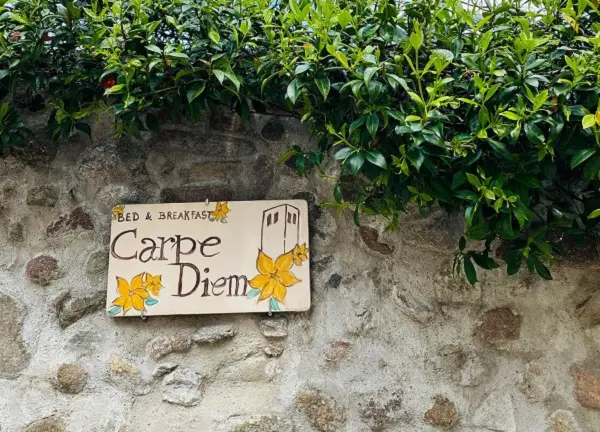 BED & BREAKFAST
Carpe
Diem